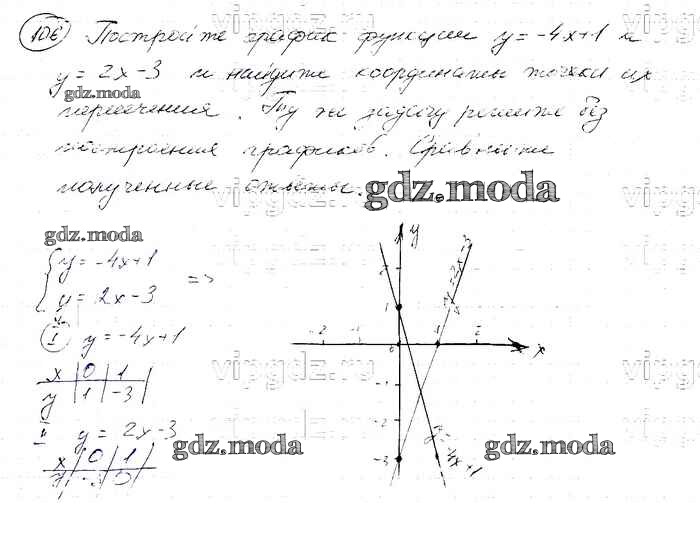 106 Постройте график функции y = -4x+1 и
y = 2x-3 и найдите координаты точки их
gdz.moda
пересечения. Ту же задачу решите без
построения графиков. Сравните
полученные ответы.
gdz.moda
gdz.moda
{ y = -4x+1
y = 2x-3 =>
I y = -4x+1
x 0 1
y 1 -3
II y = 2x-3
x 0 1
gdz.moda
gdz.moda
y
x
-2 -1 0 1 2
1
-1
-2
-3
y=2x-3
y=-4x+1
vipgdz.ru
vipgdz.ru